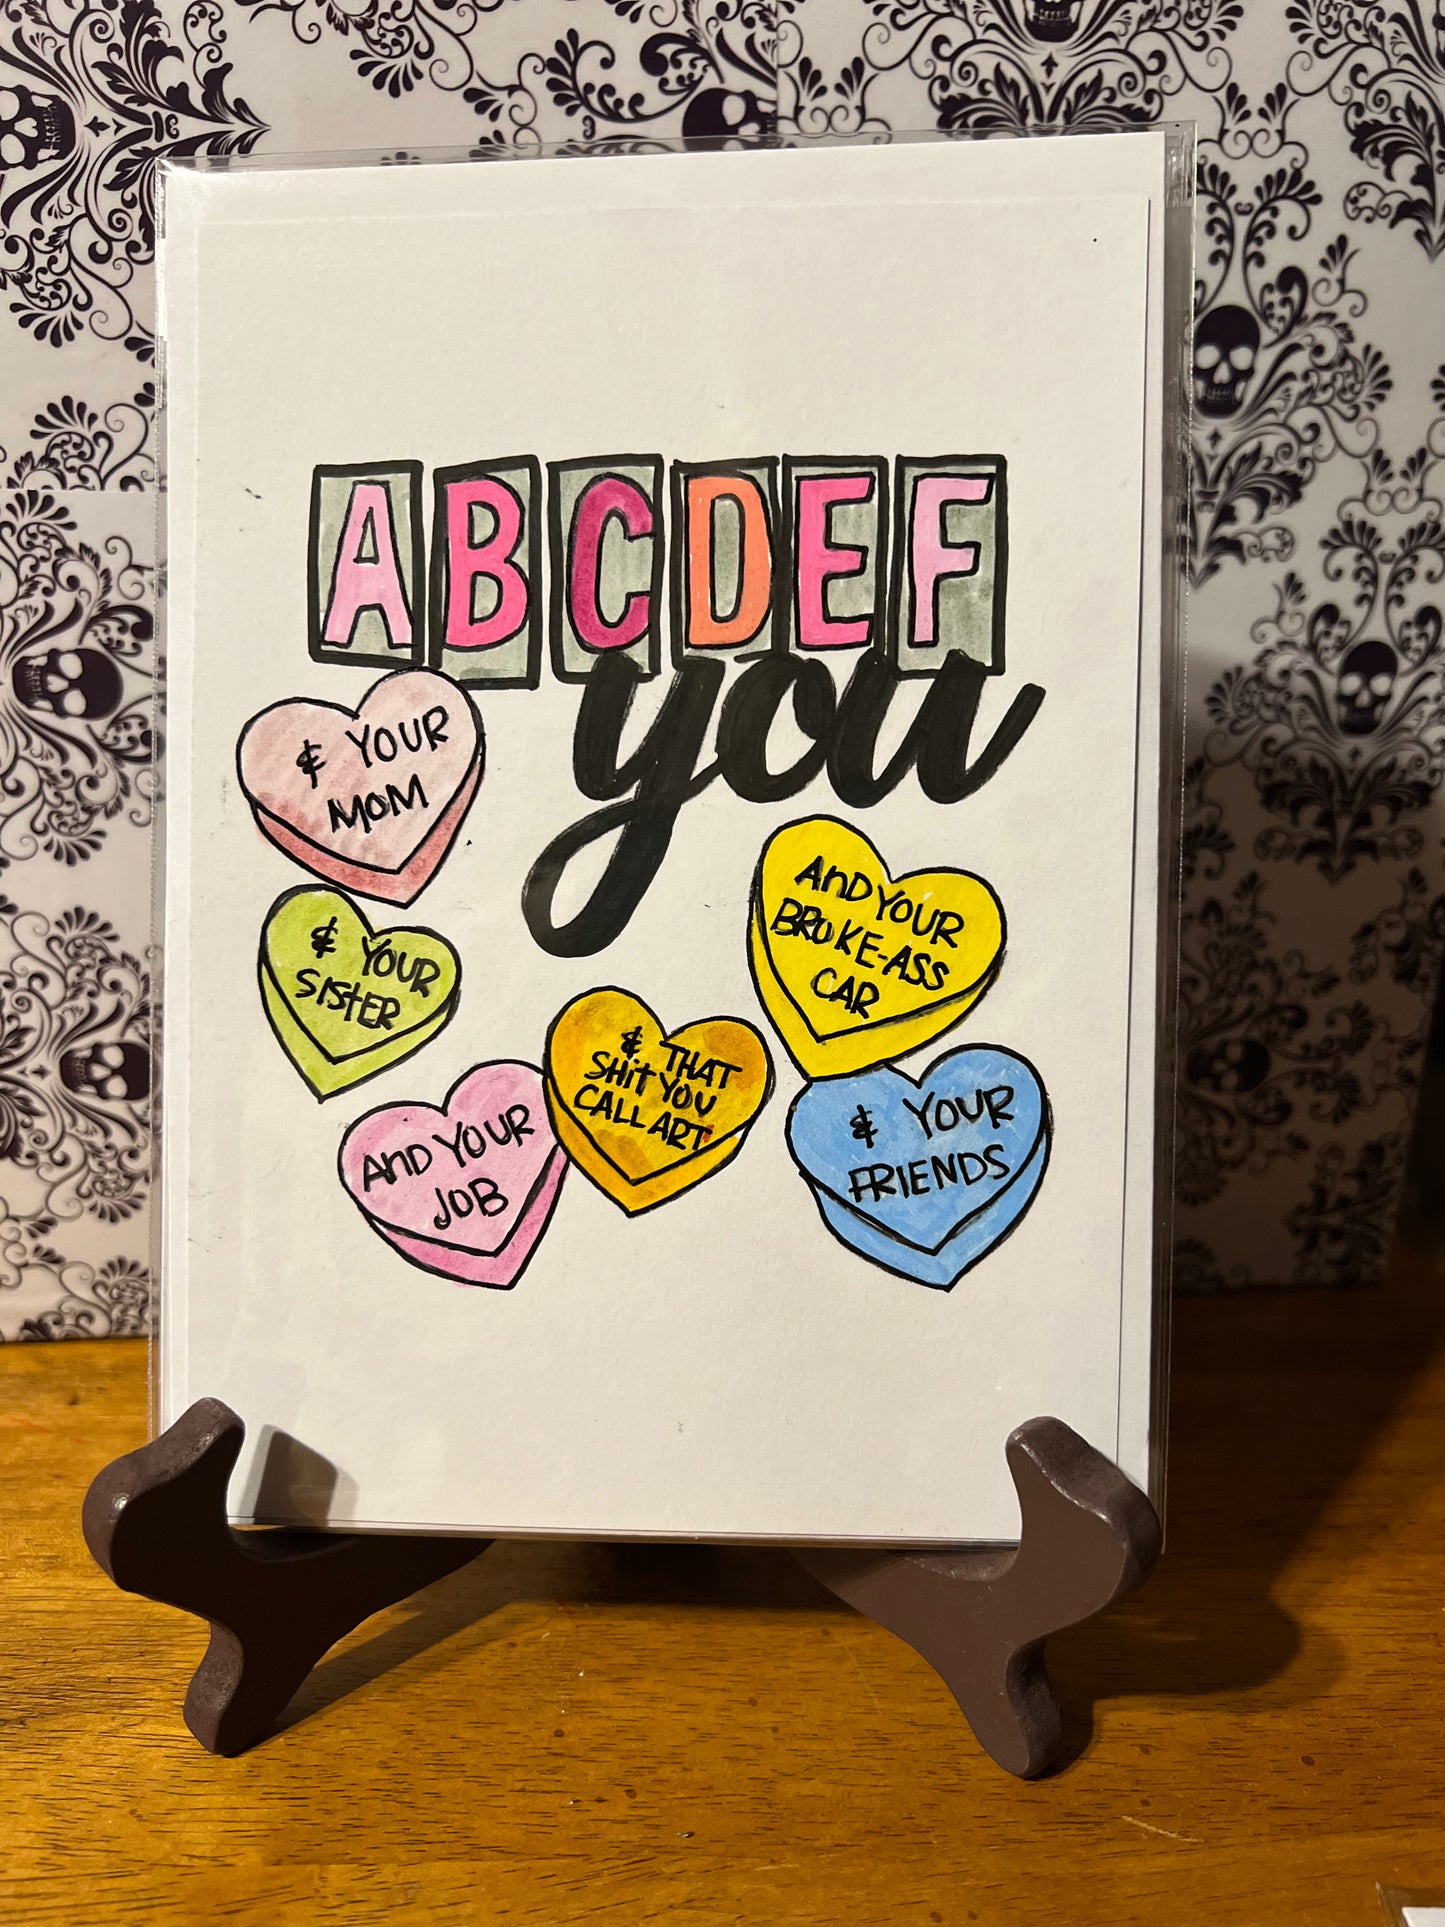 ABCDEF
you
& YOUR
MOM
& YOUR
SISTER
AND YOUR
JOB
& THAT
SHIT YOU
CALL ART
AND YOUR
BROKE-ASS
CAR
& YOUR
FRIENDS